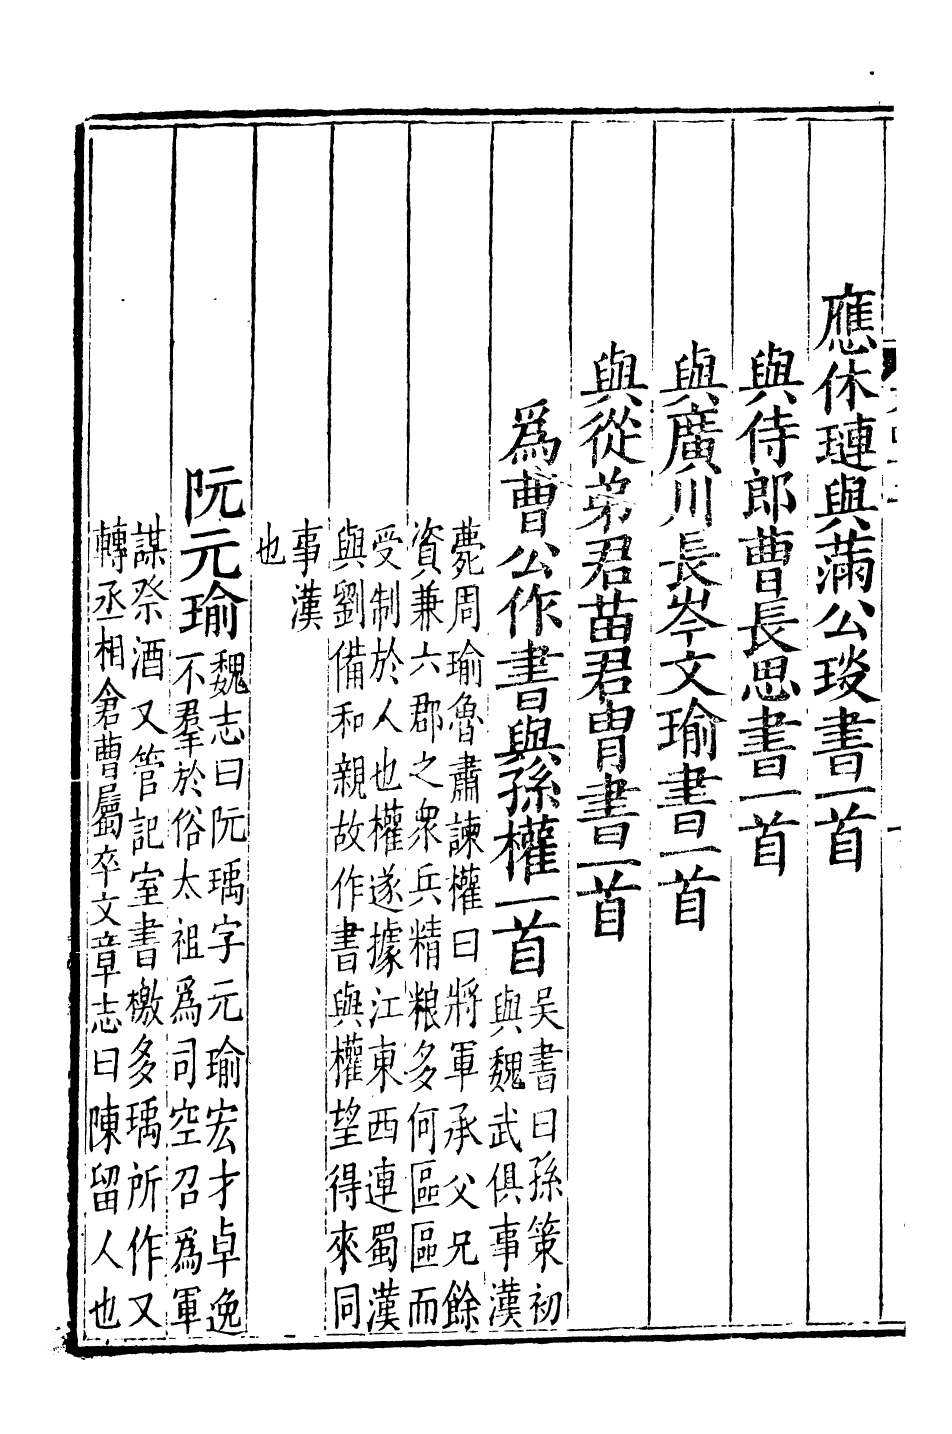 應休璉與滿公琰書一首
與侍郎曹長思書一首
與廣川長岑文瑜書一首
與從弟君苗君胄書一首
爲曹公作書與孫權一首吴書曰孫策初
與魏武俱事漢
薨周瑜魯肅諫權曰將軍承父兄餘
資兼六郡之衆兵精粮多何區區而
受制於人也權遂據江東西連蜀漢
與劉備和親故作書與權望得來同
事漢
也
阮元瑜魏志曰阮瑀字元瑜宏才卓逸
不羣於俗太祖爲司空召爲軍
謀祭酒又管記室書檄多瑀所作又
轉丞相倉曹屬卒文章志曰陳留人也